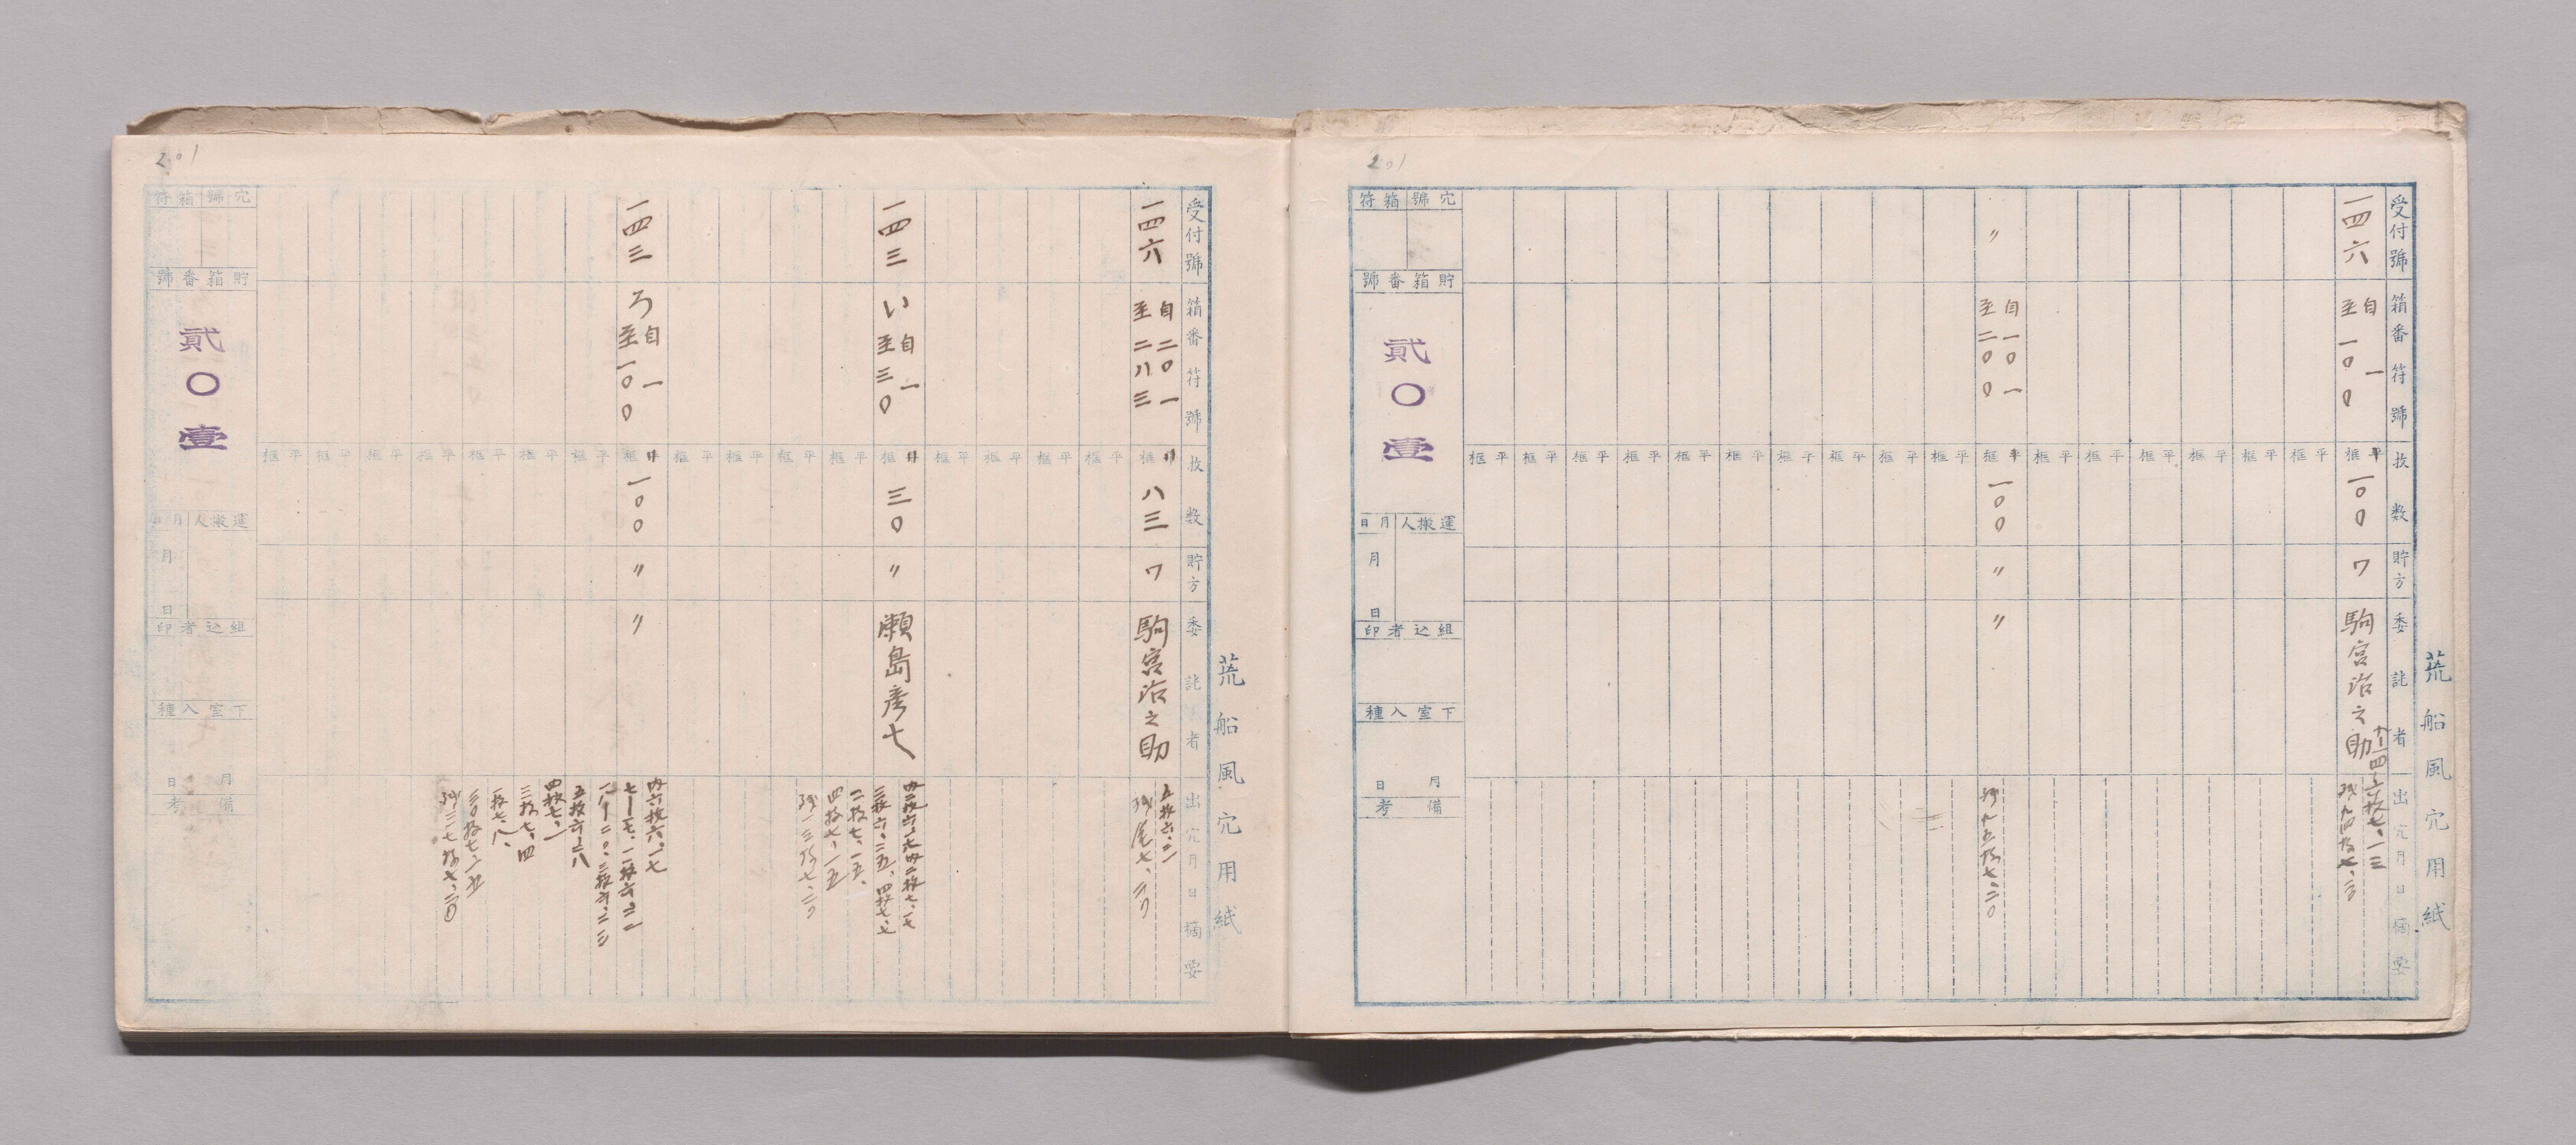 荒船風穴用紙
受付號
箱番符號
枚数
貯方
委託者
出穴月日摘要
一四六
自一
至一〇〇
平框
一〇〇
ワ
駒宮治之助
六枚七、一三
残九四枚七、二〇
〃
自一〇一
至二〇〇
平框
一〇〇
〃
〃
残九五枚七、二〇
201
穴號箱符
貯箱番號
貳〇壹
運搬人月日
月日
組込者印
下室入種
月日
備考
荒船風穴用紙
受付號
箱番符號
枚数
貯方
委託者
出穴月日摘要
一四六
自二〇一
至二八三
框
八三
ワ
駒宮治之助
五枚六、二一
残尾七、二〇
一四三
い自一
至三〇
框
三〇
〃
瀬島彦七
三枚六、二五、四枚七、七
二枚七、一五、
四枚七、一五
残一三枚七、二〇
一四三
ろ自一
至一〇〇
框
一〇〇
〃
〃
内六枚六、一七
五枚六、二八
四枚七、一
三枚七、四
一枚七、八、
三〇枚七、一五
残三七枚七、二〇
201
穴號箱符
貯箱番號
貳〇壹
運搬人月日
月日
組込者印
下室入種
月日
備考